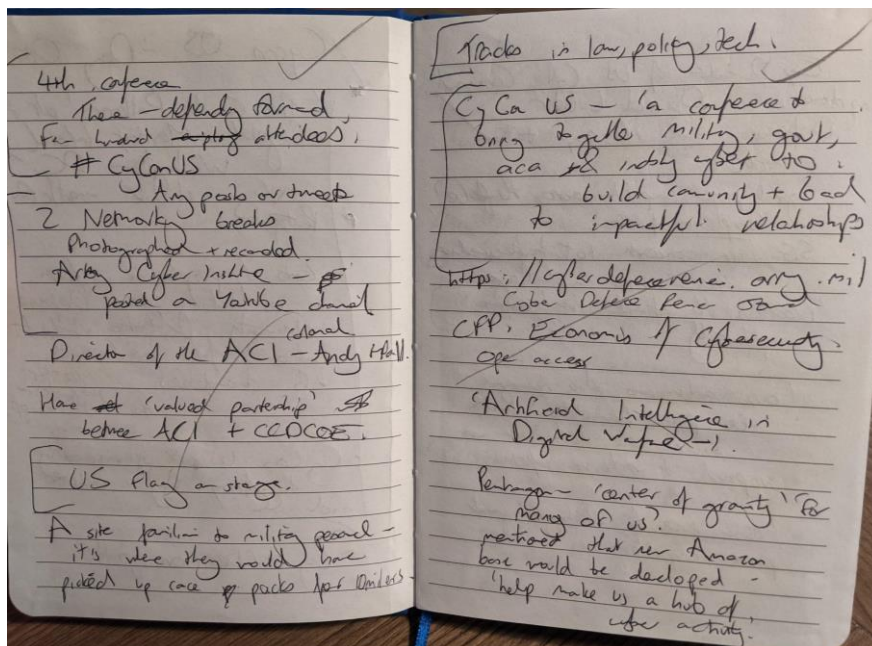 4th conference
Theme - defending forward,
Few hundred attendees,
# CyConUS
Any posts or tweets
2 Network breaks
Photographed + recorded.
Army Cyber Institute -
posted on Youtube channel
colonel
Director of the ACI - Andy Hall.
Have 'valued partnership'
between ACI + CCDCOE.
US Flag on stage.
A site familiar to military personnel -
it's where they would have
picked up race packs for 10milers.
Tracks in law, policy, tech.
CyCon US - 'a conference to
bring together military, govt,
aca & industry cyber to
build community + lead
to impactful relationships
https://cyberdefensereview.army.mil
Cyber Defense Review
CFP. Economics of Cybersecurity.
open access
'Artificial Intelligence in
Digital Warfare -'.
Pentagon - 'center of gravity' for
many of us'.
mentioned that new Amazon
base would be developed -
'help make us a hub of
cyber activity.'